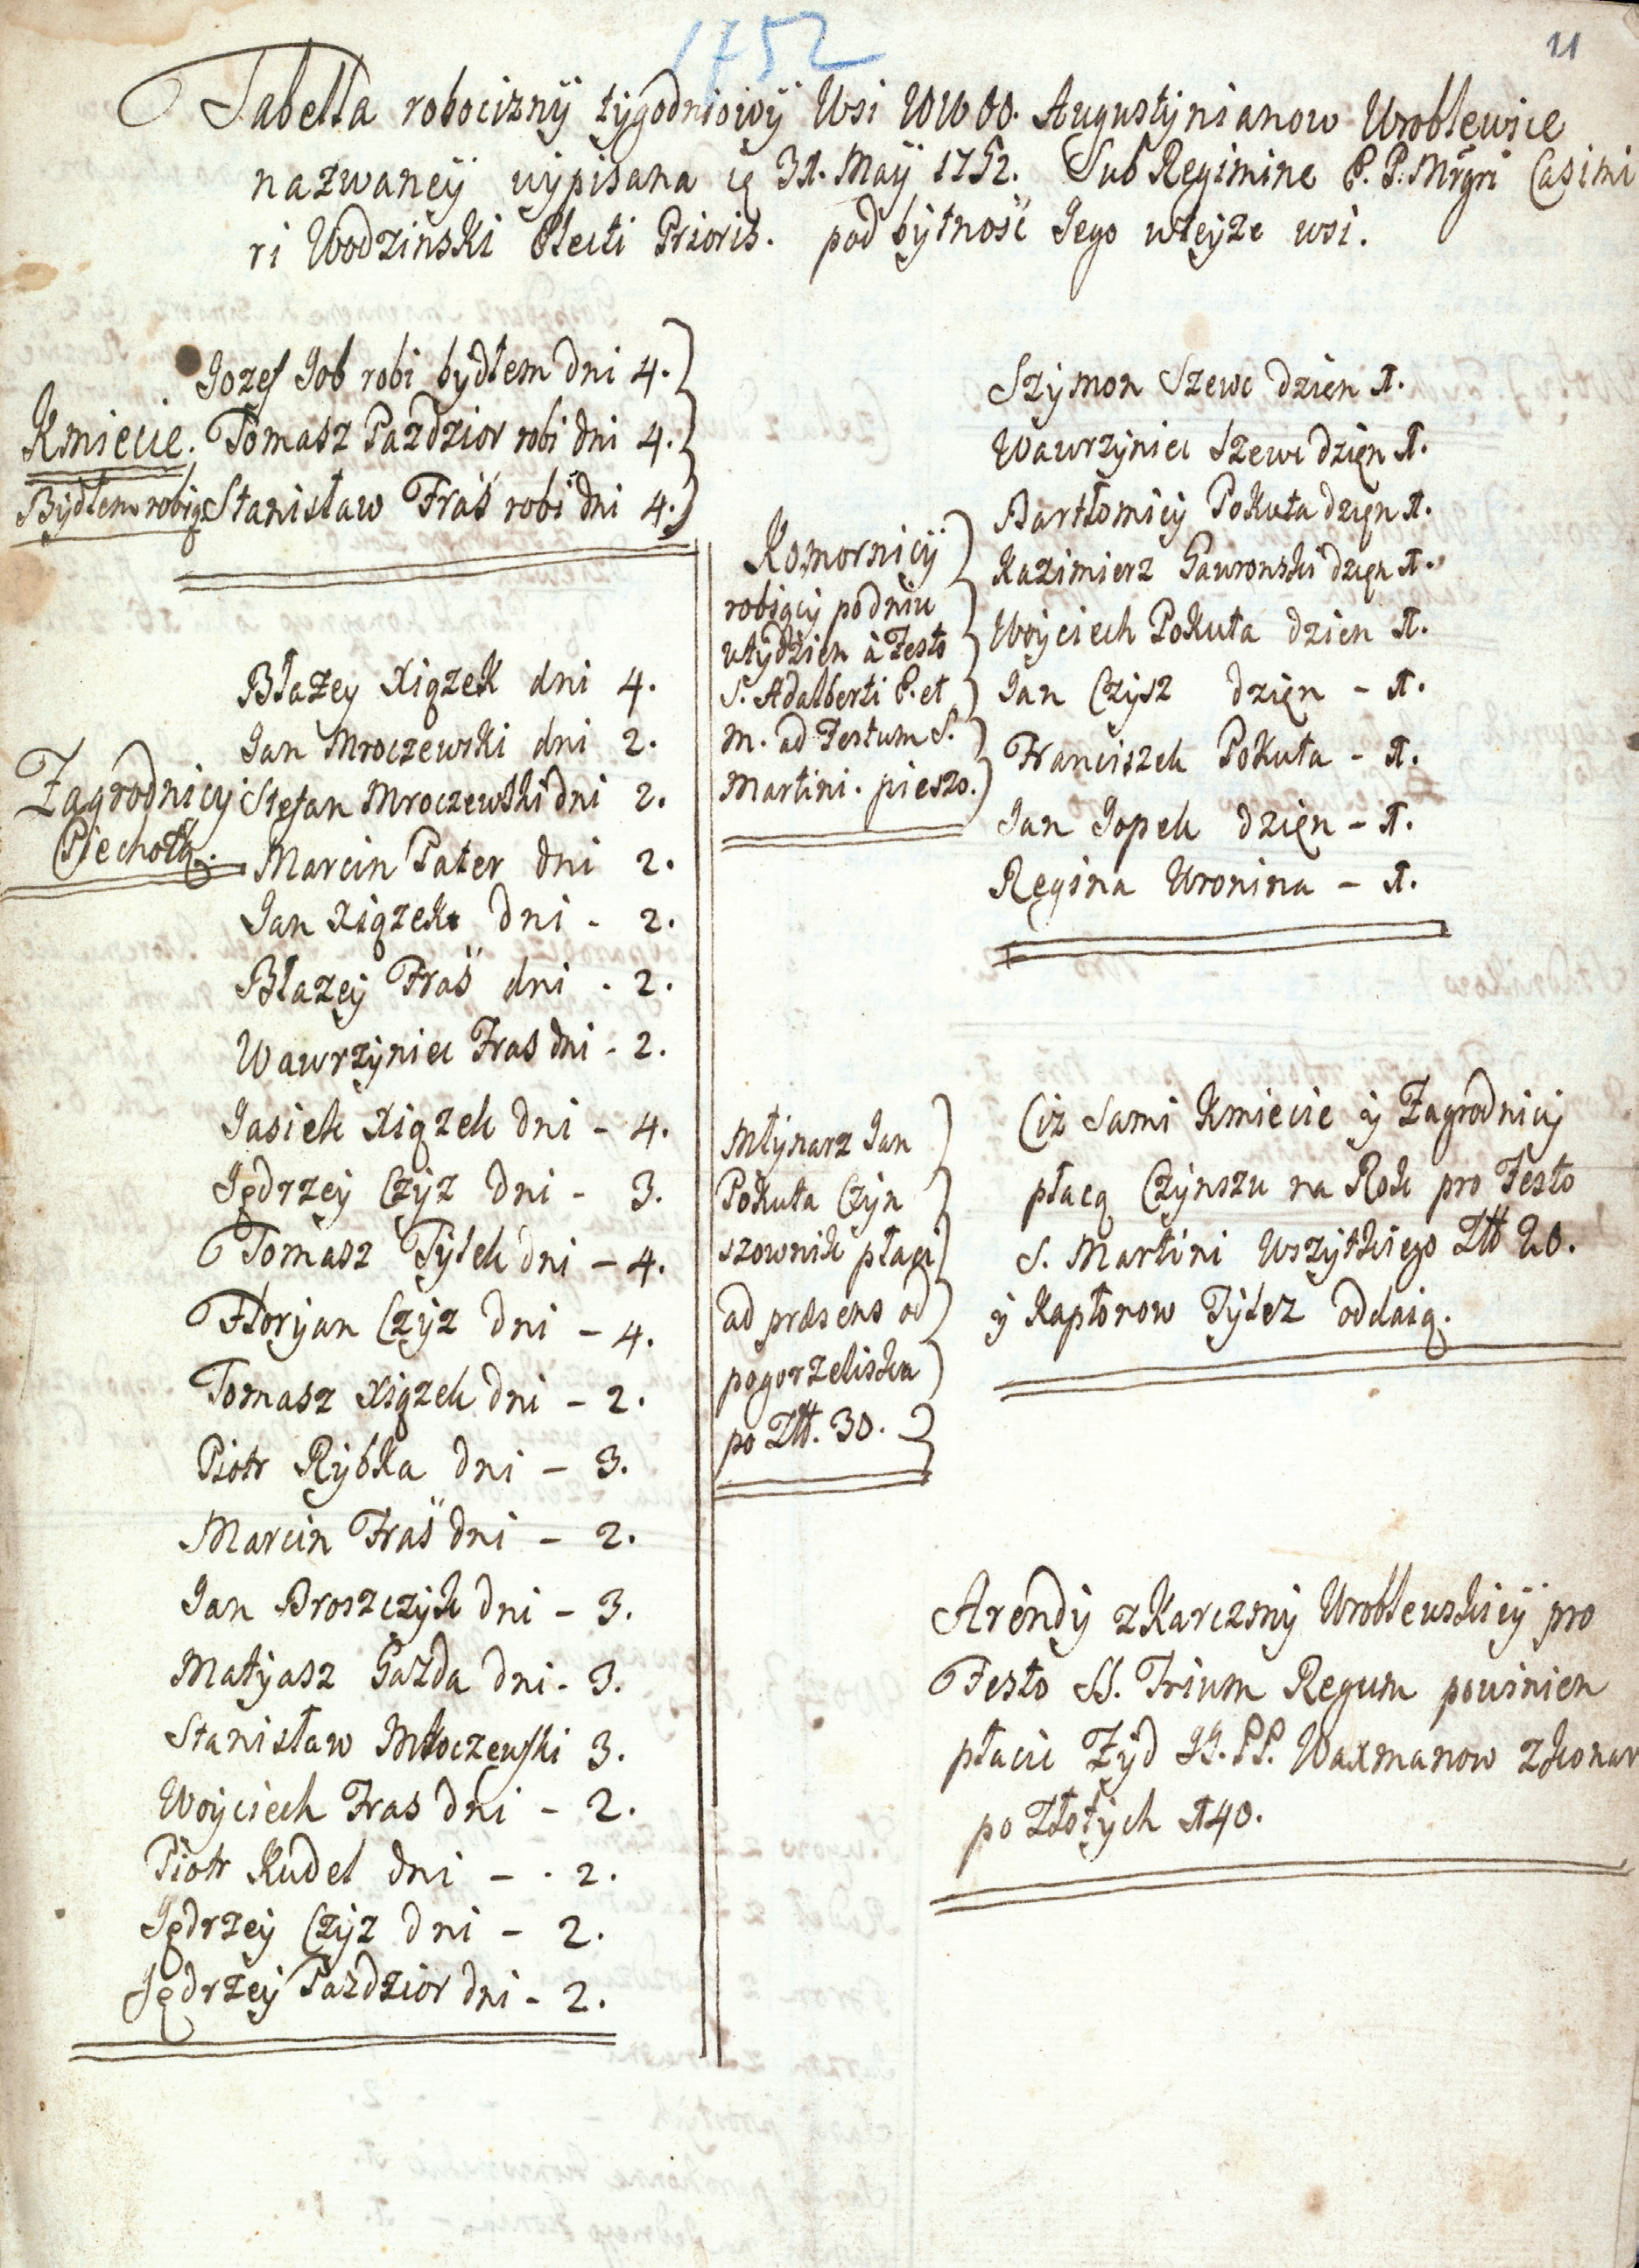 1752
21
Tabella robocizny tygodniowy Wsi WW OO. Augustynianow Wroblewice
nazwaney wypisana ię 31. May 1752. Sub Regimine P. P. Mrgri Casimi
ri Wodzinski Electi Prioris. pod bytnosc Jego wteyże wsi.
Jozef Job robi bydłem dni 4.
Kmiecie. Tomasz Pazdzior robi dni 4.
Bydłem robią Stanisław Fraś robi dni 4.
Błażey Xiązek dni 4.
Jan Mroczewski dni 2.
Zagrodnicy Stefan Mroczewski dni 2.
Piechotą. Marcin Pater dni 2.
Jan Xiązek dni - 2.
Błazey Fraś dni - 2.
Wawrzyniec Fras dni - 2.
Jasiek Xiązek dni - 4.
Jędrzey Czyz dni - 3.
Tomasz Tylek dni - 4.
Floryan Czyz dni - 4.
Tomasz Xiązek dni - 2.
Piotr Rybka dni - 3.
Marcin Fraś dni - 2.
Jan Broszczyk dni - 3.
Matyasz Gazda dni - 3.
Stanisław Młoczewski 3.
Woyciech Fras dni - 2.
Piotr Kudel dni - . 2.
Jędrzey Czyz dni - 2.
Jędrzey Pazdzior dni - 2.
Komornicy
robiący po dniu
w tydzien à Festo
S. Adalberti P. et
M. ad Festum S.
Martini. pieszo.
Szymon Szewc dzien 1.
Wawrzyniec Szewc dzięn 1.
Bartłomiey Pokuta dzięn 1.
Kazimierz Gawronski dzięn 1.
Woyciech Pokuta dzien 1.
Jan Czysz dzięn - 1.
Franciszek Pokuta - 1.
Jan Jopek dzięn - 1.
Regina Wronina - 1.
Młynarz Jan
Pokuta Czyn
szownik płaci
ad præsens od
pogorzeliska
po Złł. 30.
Ciz Sami Kmiecie y Zagrodnicy
płacą Czynszu na Rok pro Festo
S. Martini Wszytkiego Złł 20.
y Kapłonow Tylez oddaią.
Arendy z Karczmy Wroblewskiey pro
Festo SS. Trium Regum powinien
płacic Zyd JJ. PP. Waxmanow z konar
po Złotych 140.